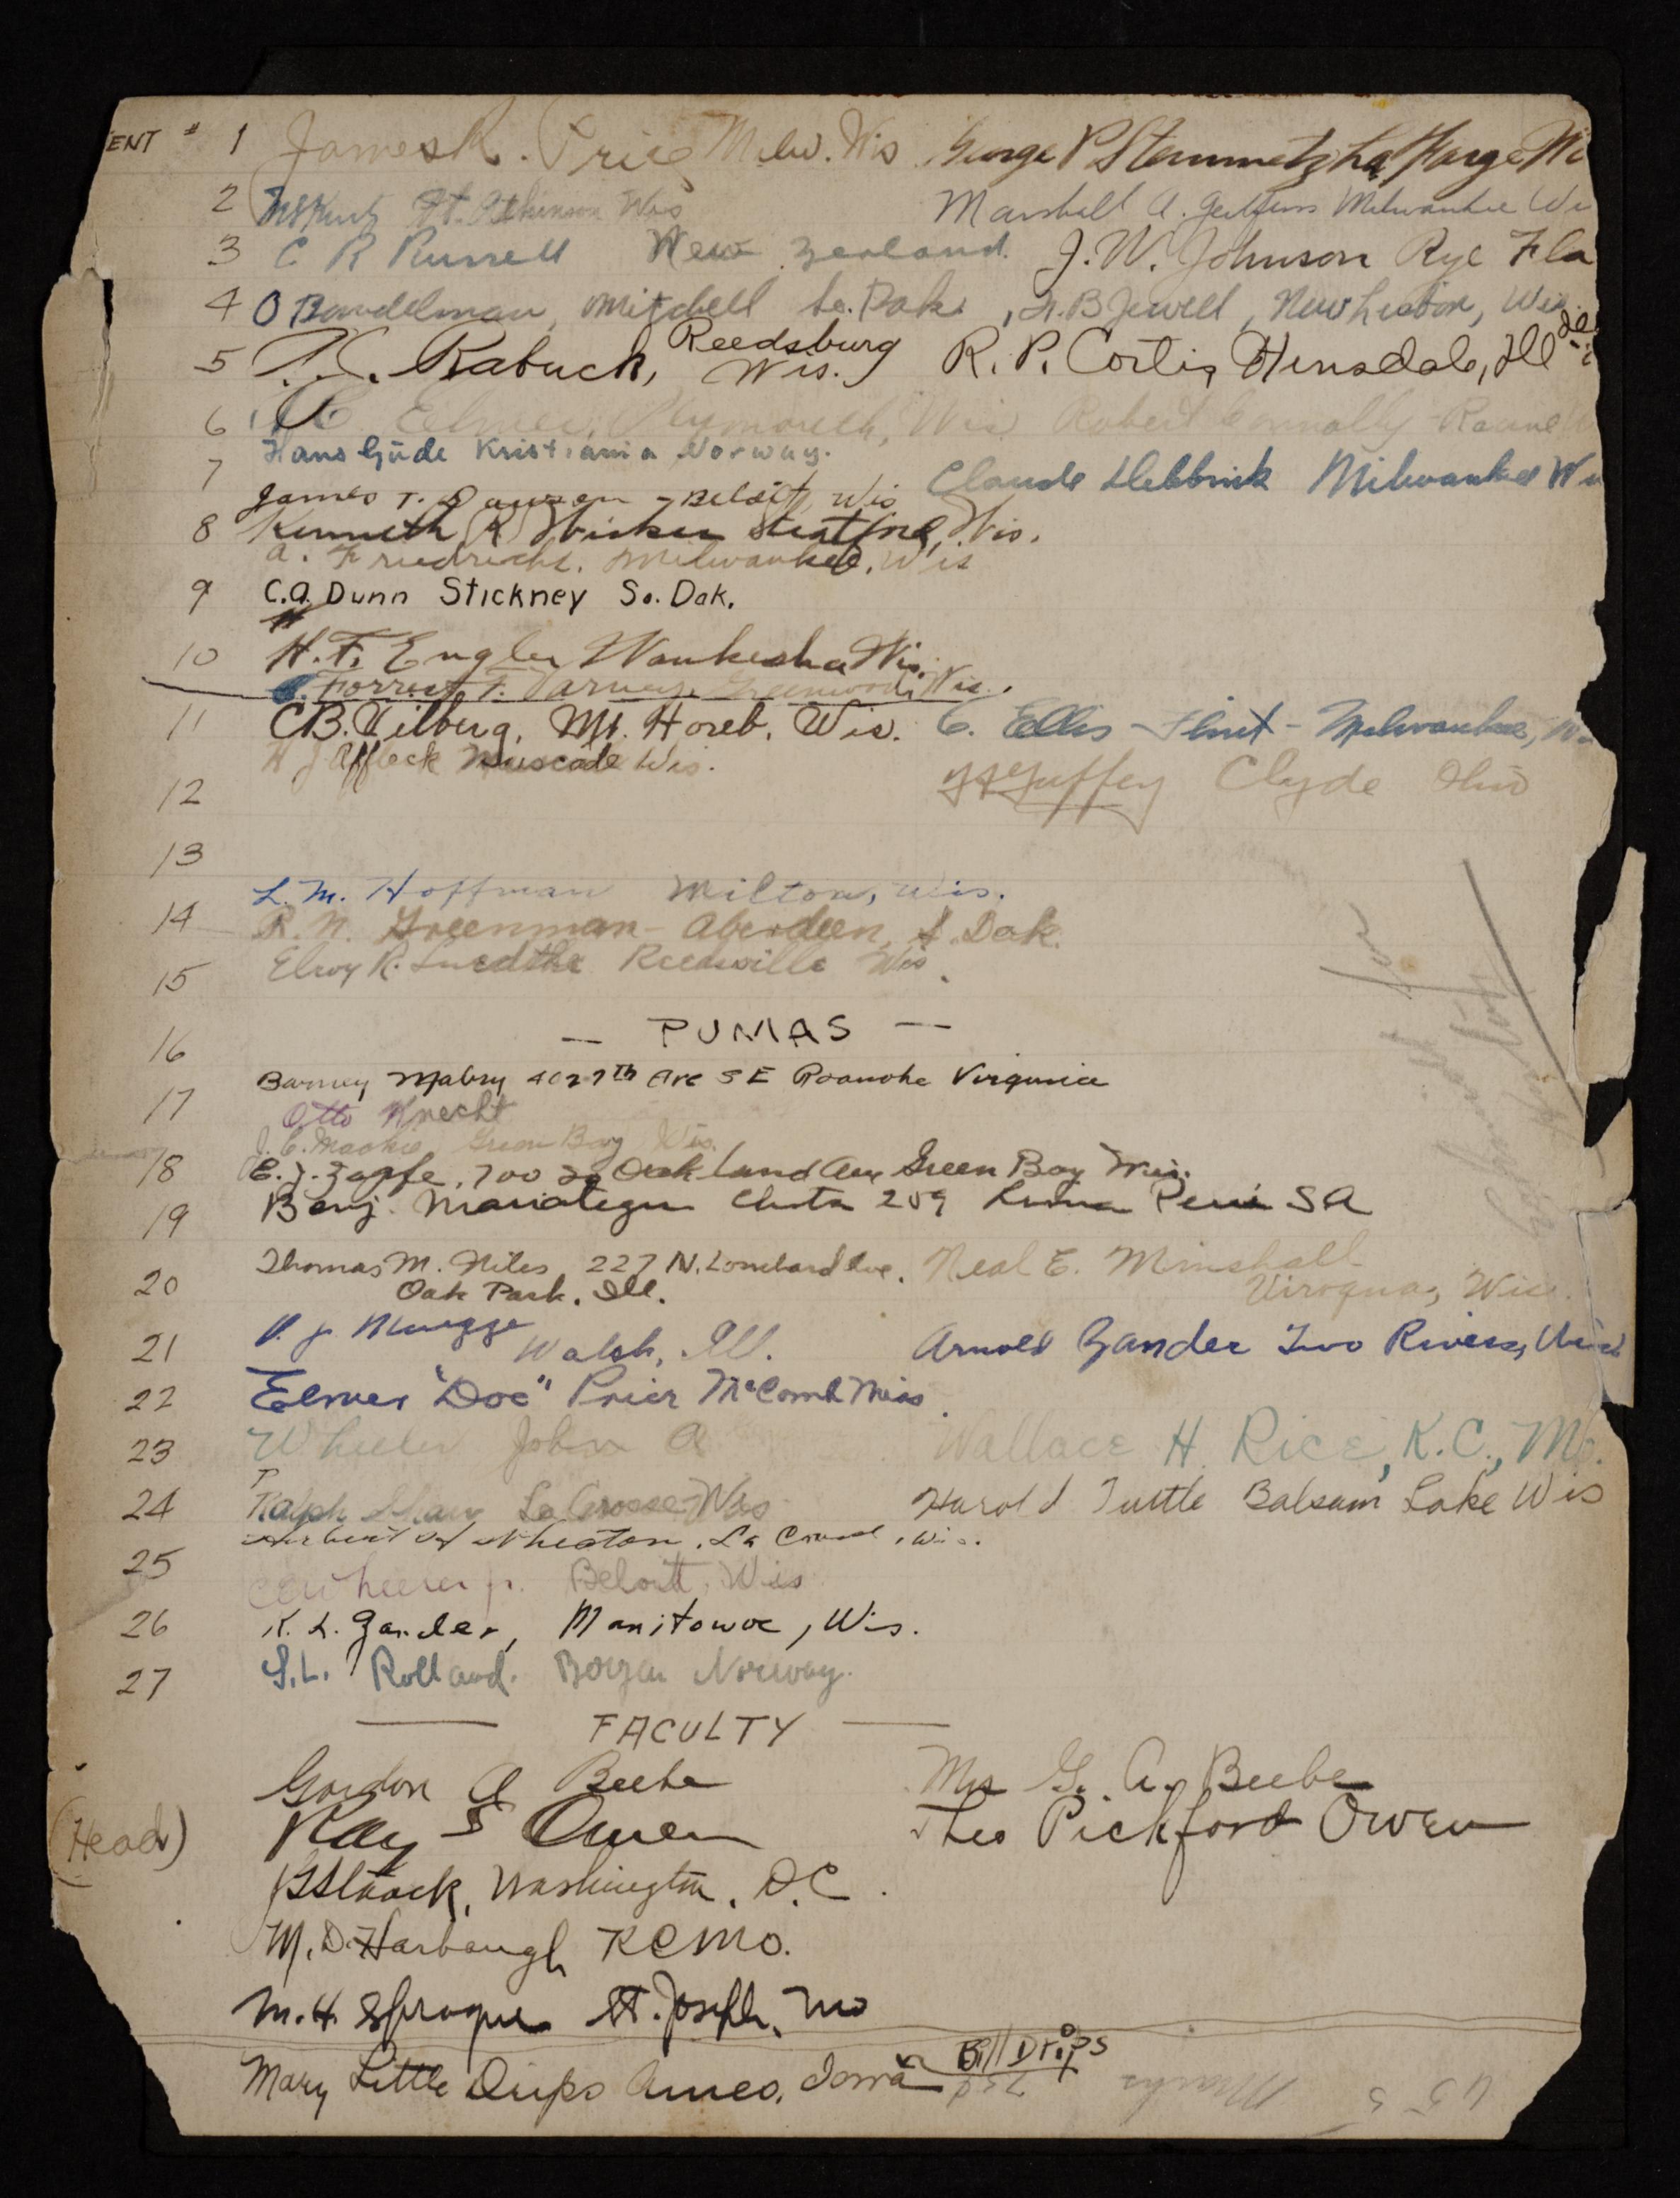 ENT # 1 James R. Price Milw. Wis George P Stemmetz La Farge Wi
2 Ft. Atkinson Wis Marshall A. Milwaukee Wi
3 C R Russell New Zealand. J. W. Johnson Rye Fla
4 O Bandelman, Mitchell So. Dak. B Jewell, New Lisbon, Wis.
5 Rabuck, Reedsburg Wis. R. P. Cortis Hinsdale, Ill
6 Elmer, Plymouth, Wis Robert Connolly - Roanoke
Hans Gude Kristiania Norway.
7 Claude Hebbrink Milwaukee Wi
James T. Dawson - Beloit, Wis
8 Kenneth R Wicker Wis.
A. Friedricht. Milwaukee, Wis
9 C.A. Dunn Stickney So. Dak.
10 H. F. Engler Waukesha Wis.
Forrest F. Varney, Greenwood, Wis.
11 C.B. Vilberg, Mt. Horeb, Wis. C. Ellis - Flint - Milwaukee, Wi
H J Affleck Muscoda Wis.
12 Guffey Clyde Ohio
13
L. M. Hoffman Milton, Wis.
14 R. N. Greenman - Aberdeen, S. Dak.
15 Elroy R. Luedtke Reedsville Wis.
16 — PUMAS —
Barney Mabry 402 9th Ave SE Roanoke Virginia
17 Otto Knecht
J. C. Mackie Green Bay Wis.
18 E. J. Zapfe, 700 So Oakland Ave Green Bay Wis.
19 Benj. Mariategui Chota 259 Lima Peru SA
20 Thomas M. Niles 227 N. Lombard Ave. Neal E. Minshall
Oak Park, Ill. Viroqua, Wis.
21 Muegge Walsh, Ill. Arnold Zander Two Rivers, Wis
22 Elmer "Doc" Prier McComb Miss.
23 Wheeler John A Wallace H. Rice, K.C., Mo.
24 Ralph Shaw La Crosse Wis Harold Tuttle Balsam Lake Wis
Herbert Wheaton, La Crosse, Wis.
25 Beloit, Wis
26 K. L. Zander, Manitowoc, Wis.
27 S.L. Rolland. Norway.
— FACULTY —
Gordon A Beebe Mrs G. A. Beebe
(Head) Ray S Owen Theo Pickford Owen
Staack, Washington, D.C.
M. D. Harbaugh KC MO.
M. H. Sprague St. Joseph, Mo
Mary Little Drips Ames, Iowa Bill Drips